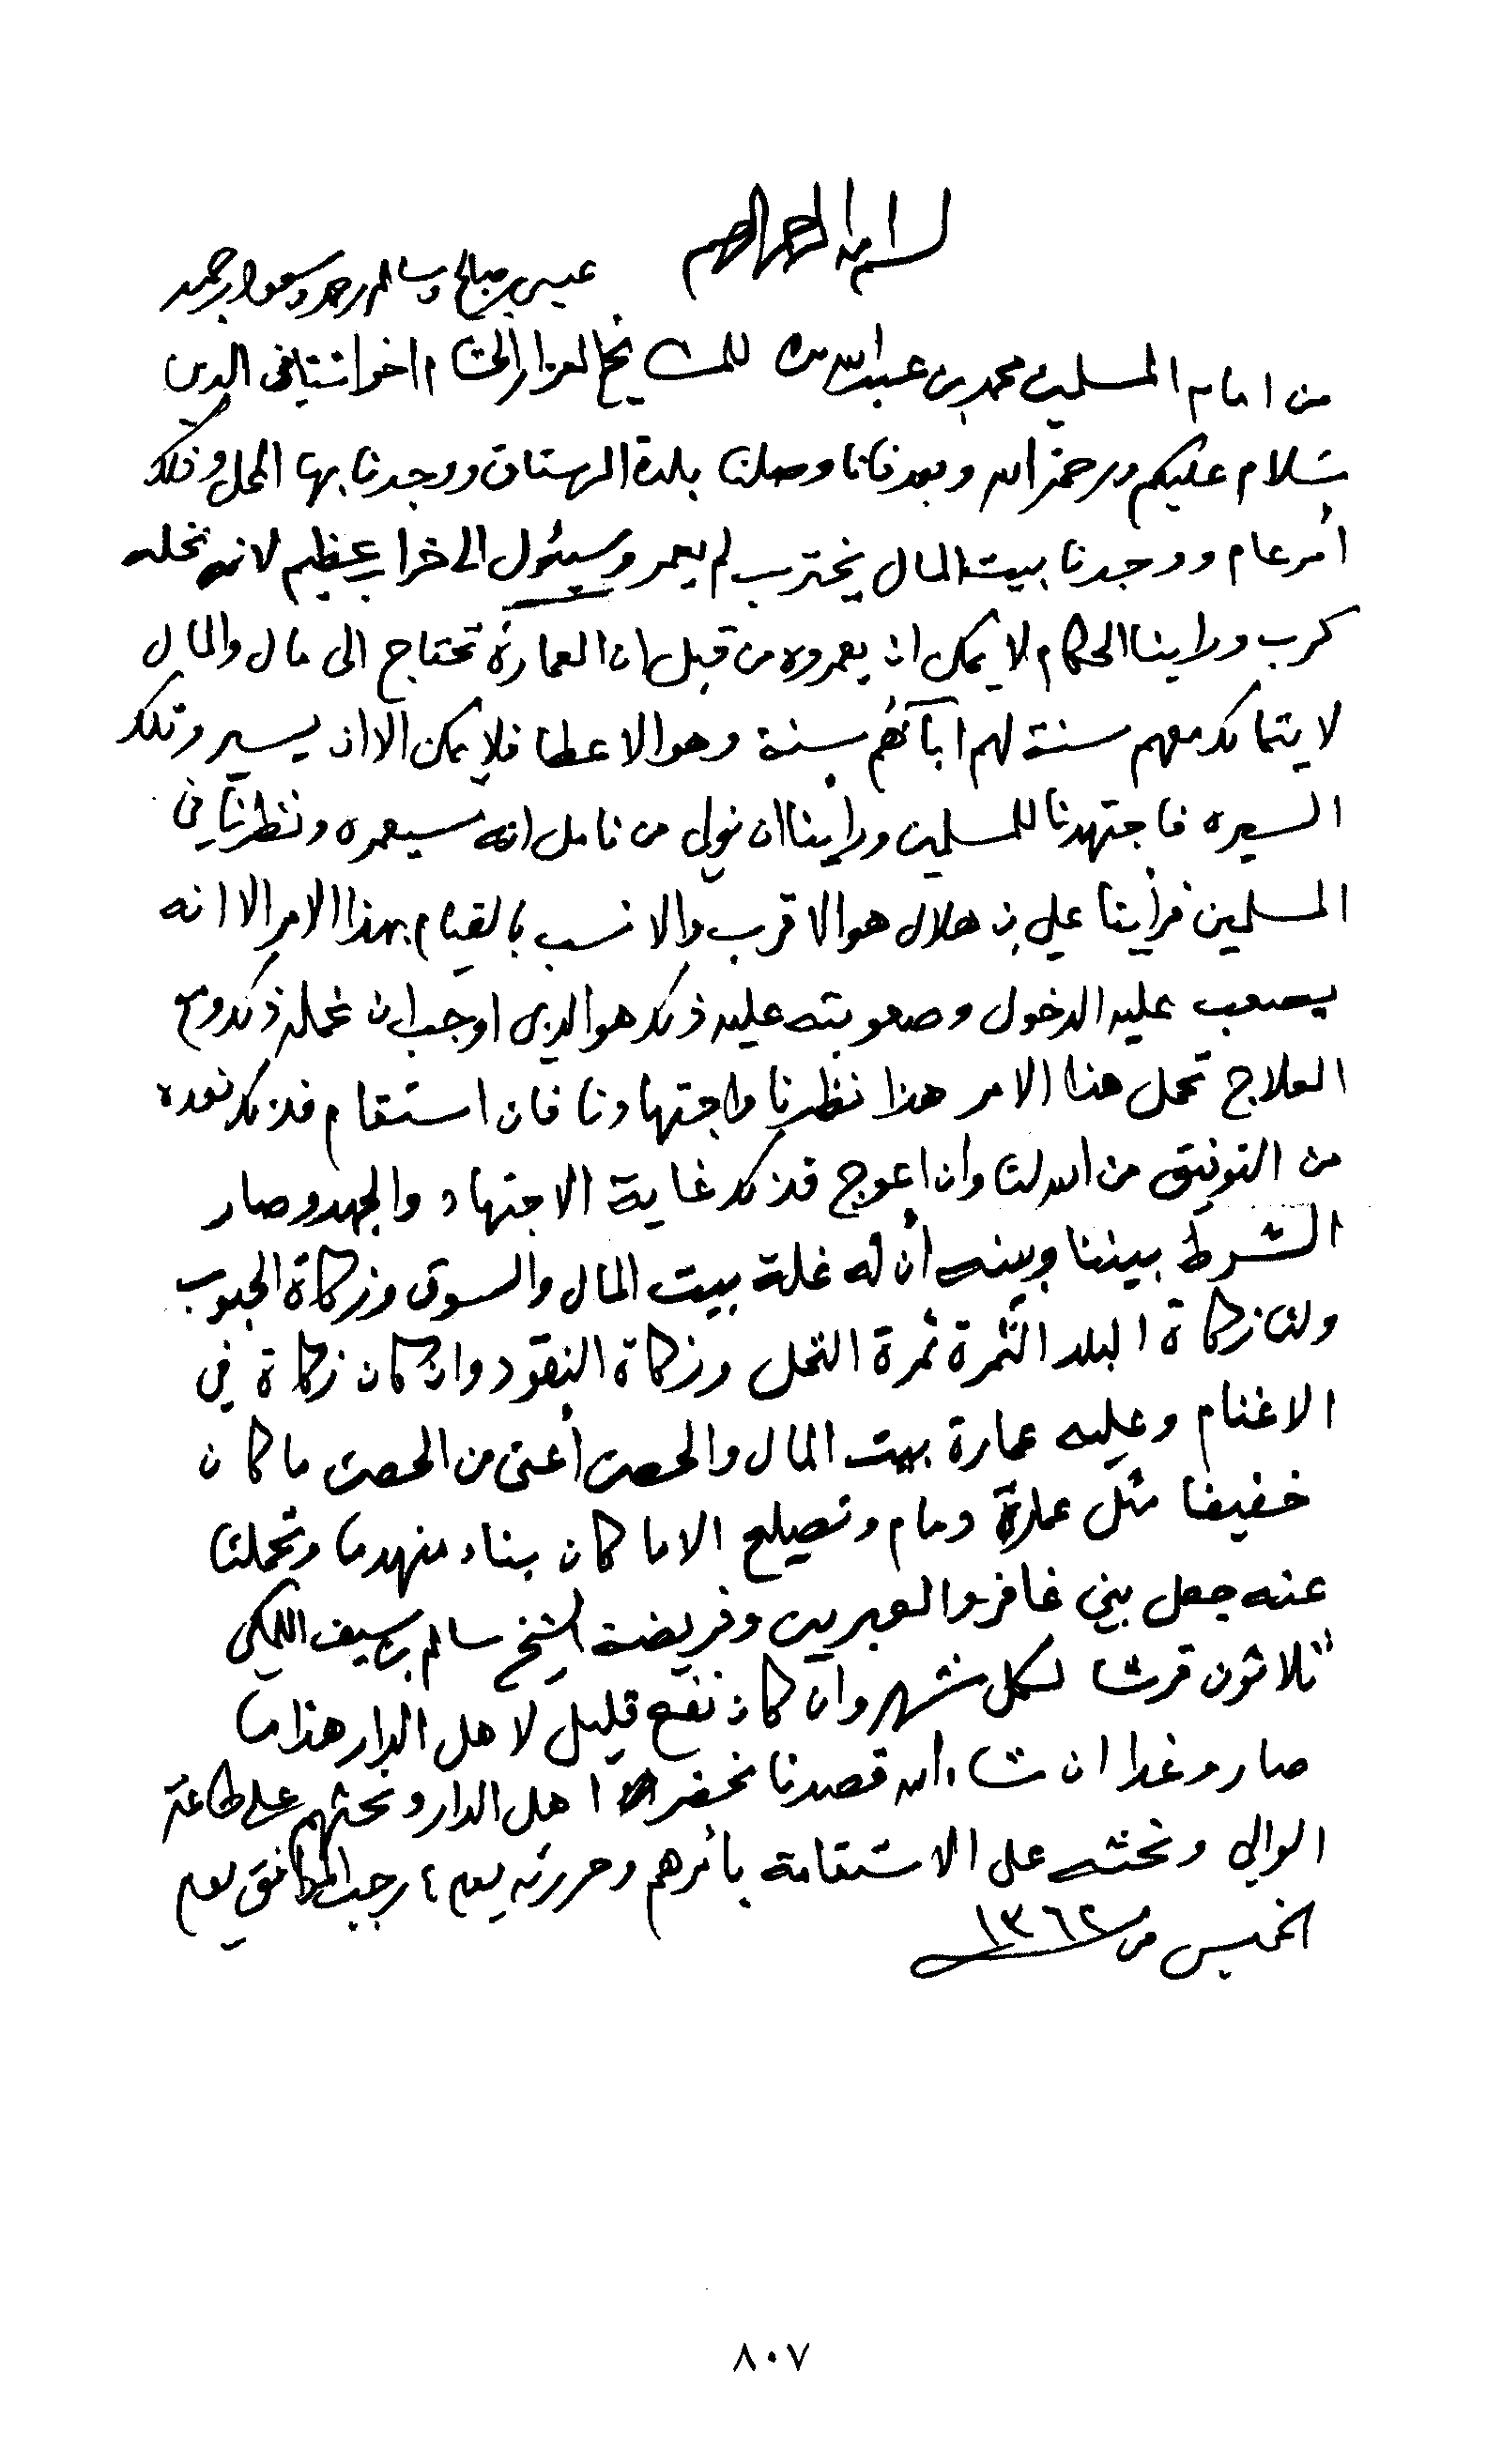 بسم الله الرحمن الرحيم
عيسى بن صالح وسالم بن حمد وسعود بن حمد
من امام المسلمين محمد بن عبدالله للمشايخ العزاز الحشام اخواننا في الدين
سلام عليكم ورحمة الله وبعد فانا وصلنا بلدة الرستاق ووجدنا بها المحل وذلك
أمر عام ووجدنا بيت المال يخترب لم يعمر وسيئول الى خراب عظيم لانه نخله
كرب وراينا الحكام لا يمكن ان يعمروه من قبل ان العمارة تحتاج الى مال والمال
لا يتماكد معهم سنة لهم ابآئهم سنة وهو الاعطا فلا يمكن الا ان يسير وتلك
السيره فاجتهدنا للمسلمين وراينا ان نولي من نامل انه سيعمره ونظرنا في
المسلمين فرأينا علي بن هلال هو الاقرب والانسب بالقيام بهذا الامر الا انه
يصعب عليه الدخول وصعوبته عليه ذلك هو الذي اوجب ان نحمله ذلك ومع
العلاج تحمل هذا الامر هذا نظرنا واجتهادنا فان استقام فذلك نعده
من التوفيق من الله لنا وان اعوج فذلك غاية الاجتهاد والجهد وصار
الشرط بيننا وبينه أن له غلة بيت المال والسوق وزكاة الحبوب
ولنا زكاة البلد الثمرة ثمرة النخل وزكاة النقود وان كان زكاة في
الاغنام وعليه عمارة بيت المال والحصن أعني من الحصن ما كان
خفيفا مثل عمارة دمام وتصليح الا ما كان بناء منهدما وتحملنا
عنه جعل بني غافر والعبريين وفريضة الشيخ سالم بن سيف اللمكي
ثلاثون قرشا لكل شهر وان كان نفع قليل لاهل الدار هذا ما
صار وغدا ان شاء الله قصدنا نحضر اهل الدار ونحثهم على طاعة
الوالي ونحثه على الاستقامة بأمرهم وحررته يوم ٤ رجب الموافق يوم
الخميس من ١٣٦٢
٨٠٧